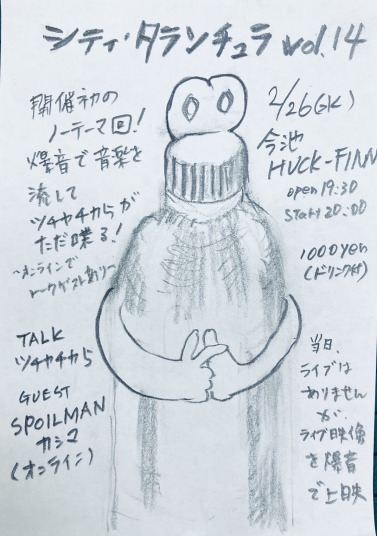 シティ・タランチュラ vol.14
開催初の
ノーテーマ回!
爆音で音楽を
流して
ツチヤチカらが
ただ喋る!
〜オンラインで
トークゲストあり〜
TALK
ツチヤチカら
GUEST
SPOILMAN
カシマ
(オンライン)
2/26(水)
今池
HUCK-FINN
open 19:30
start 20:00
1000yen
(ドリンク付)
当日、
ライブは
ありません
が、
ライブ映像
を爆音
で上映